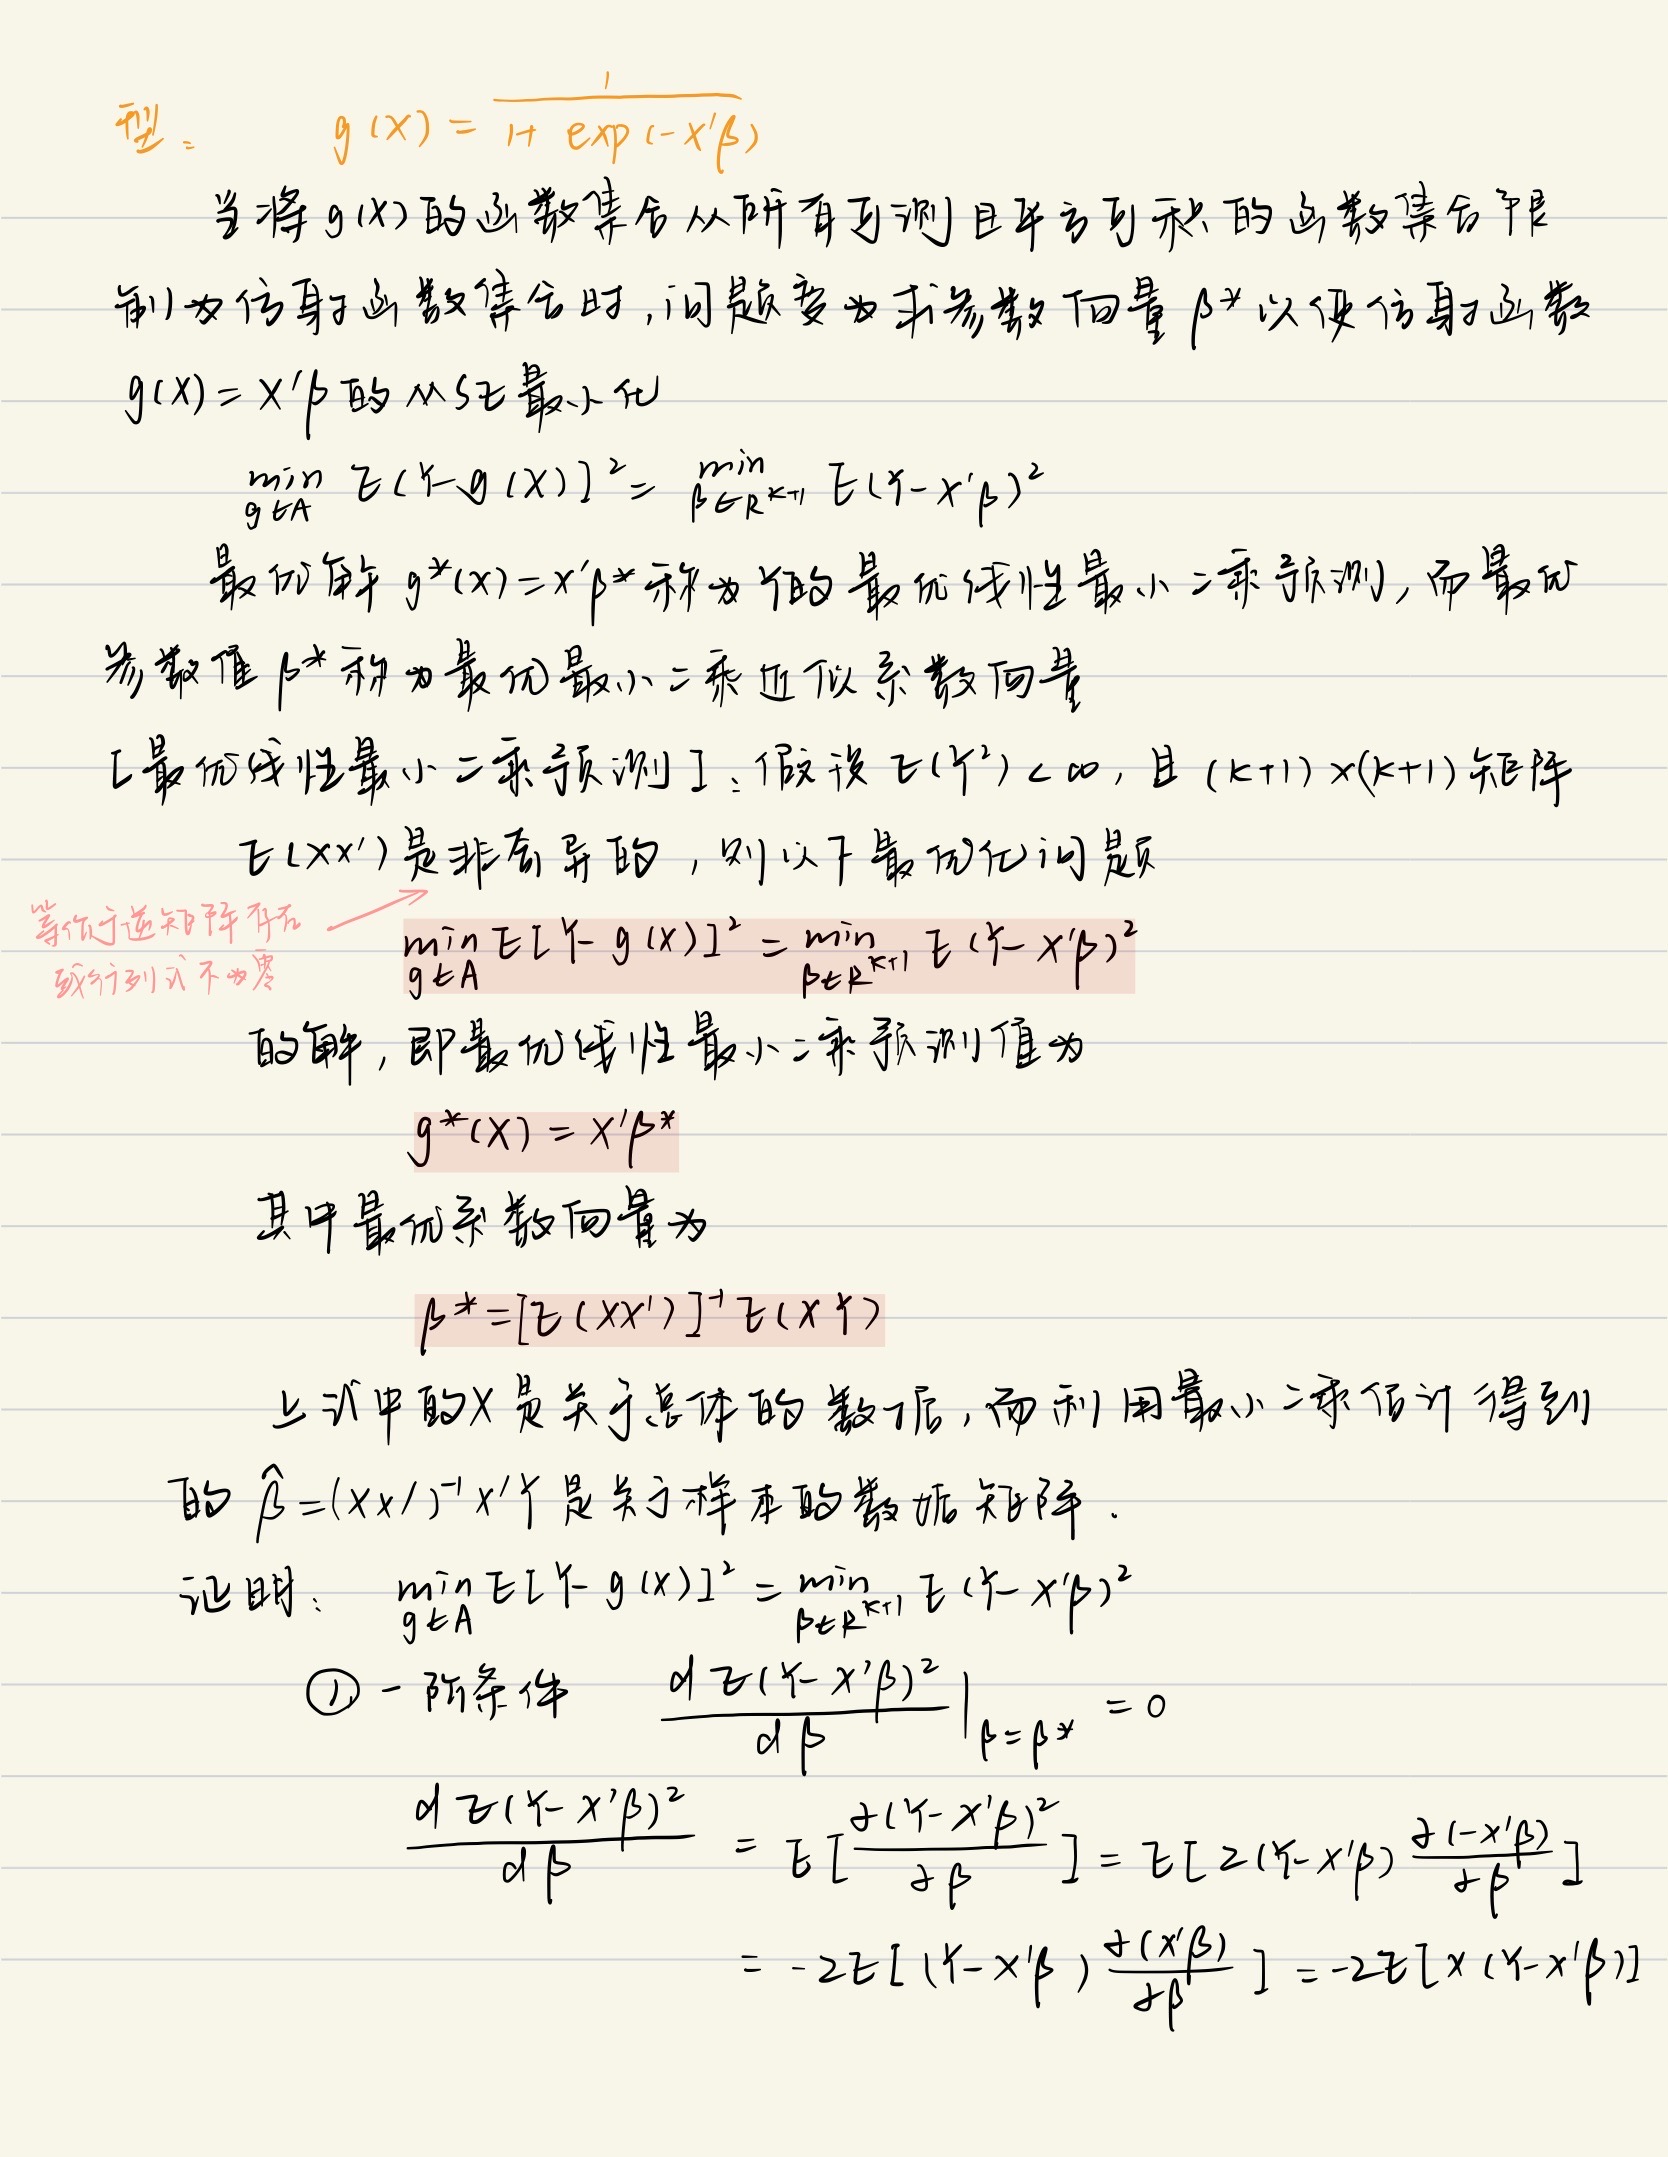 型： g(X) = 1 / (1+ exp(-X'β))
当将g(X)的函数集合从所有可测且平方可积的函数集合限
制为仿射函数集合时,问题变为求参数向量β*以使仿射函数
g(X)= X'β的MSE最小化
min_{g∈A} E(Y-g(X)]² = min_{β∈R^{k+1}} E(Y-X'β)²
最优解 g*(X)=X'β*称为Y的最优线性最小二乘预测,而最优
参数值β*称为最优最小二乘近似系数向量
[最优线性最小二乘预测]：假设E(Y²)<∞,且(k+1)×(k+1)矩阵
E(XX')是非奇异的,则以下最优化问题
等价于逆矩阵存在
或行列式不为零
min_{g∈A} E[Y-g(X)]² = min_{β∈R^{k+1}} E(Y-X'β)²
的解,即最优线性最小二乘预测值为
g*(X) = X'β*
其中最优系数向量为
β*=[E(XX')]⁻¹E(XY)
上式中的X是关于总体的数据,而利用最小二乘估计得到
的 β̂=(XX')⁻¹X'Y是关于样本的数据矩阵.
证明： min_{g∈A} E[Y-g(X)]² = min_{β∈R^{k+1}} E(Y-X'β)²
① 一阶条件 dE(Y-X'β)²/dβ |_{β=β*} = 0
dE(Y-X'β)²/dβ = E[∂(Y-X'β)²/∂β] = E[2(Y-X'β) ∂(-X'β)/∂β]
= -2E[(Y-X'β) ∂(X'β)/∂β] = -2E[X(Y-X'β)]